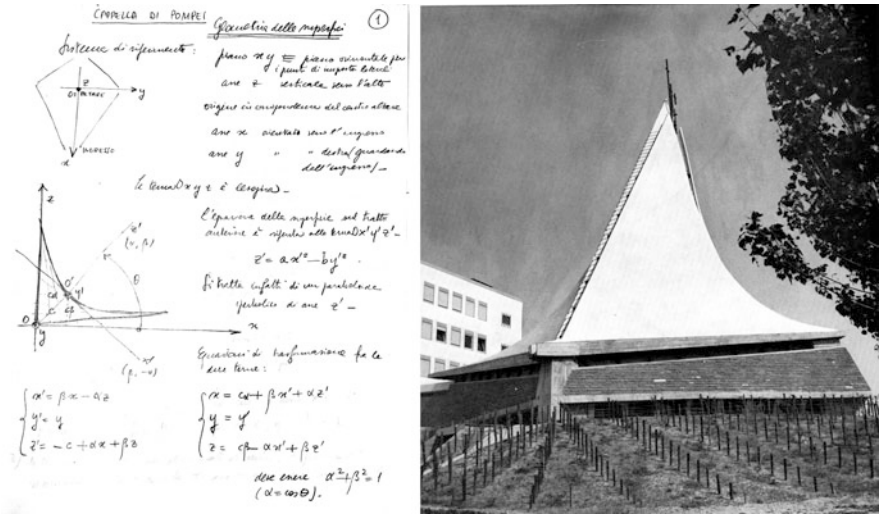 CAPPELLA DI POMPEI
Geometria delle superfici
1
Sistema di riferimento:
piano xy ≡ piano orizzontale per
i punti di imposta laterali
asse z verticale verso l'alto
origine in corrispondenza del centro altare
asse x orientato verso l'ingresso
asse y " " destra (guardando
dell'ingresso) -
z
O ALTARE
y
INGRESSO
x
la terna Oxyz è levogira -
z
z'
(α, β)
O'
y'
θ
cβ
c
O
y
x
x'
(β, -α)
l'equazione della superficie nel tratto
anteriore è riferita alla terna O'x'y'z' -
z' = ax'² - by'² .
Si tratta infatti di un paraboloide
iperbolico di asse z' -
Equazioni di trasformazione fra le
due terne:
x' = βx - αz
y' = y
z' = -c + αx + βz
x = cα + βx' + αz'
y = y'
z = cβ - αx' + βz'
deve essere α² + β² = 1
(α = cosθ).